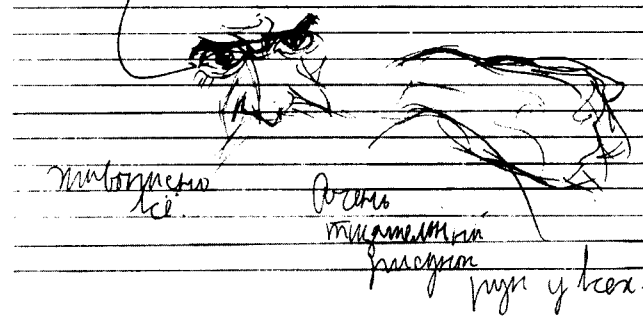 живописно
всё.
Очень
тщательный
рисунок
рук у всех.